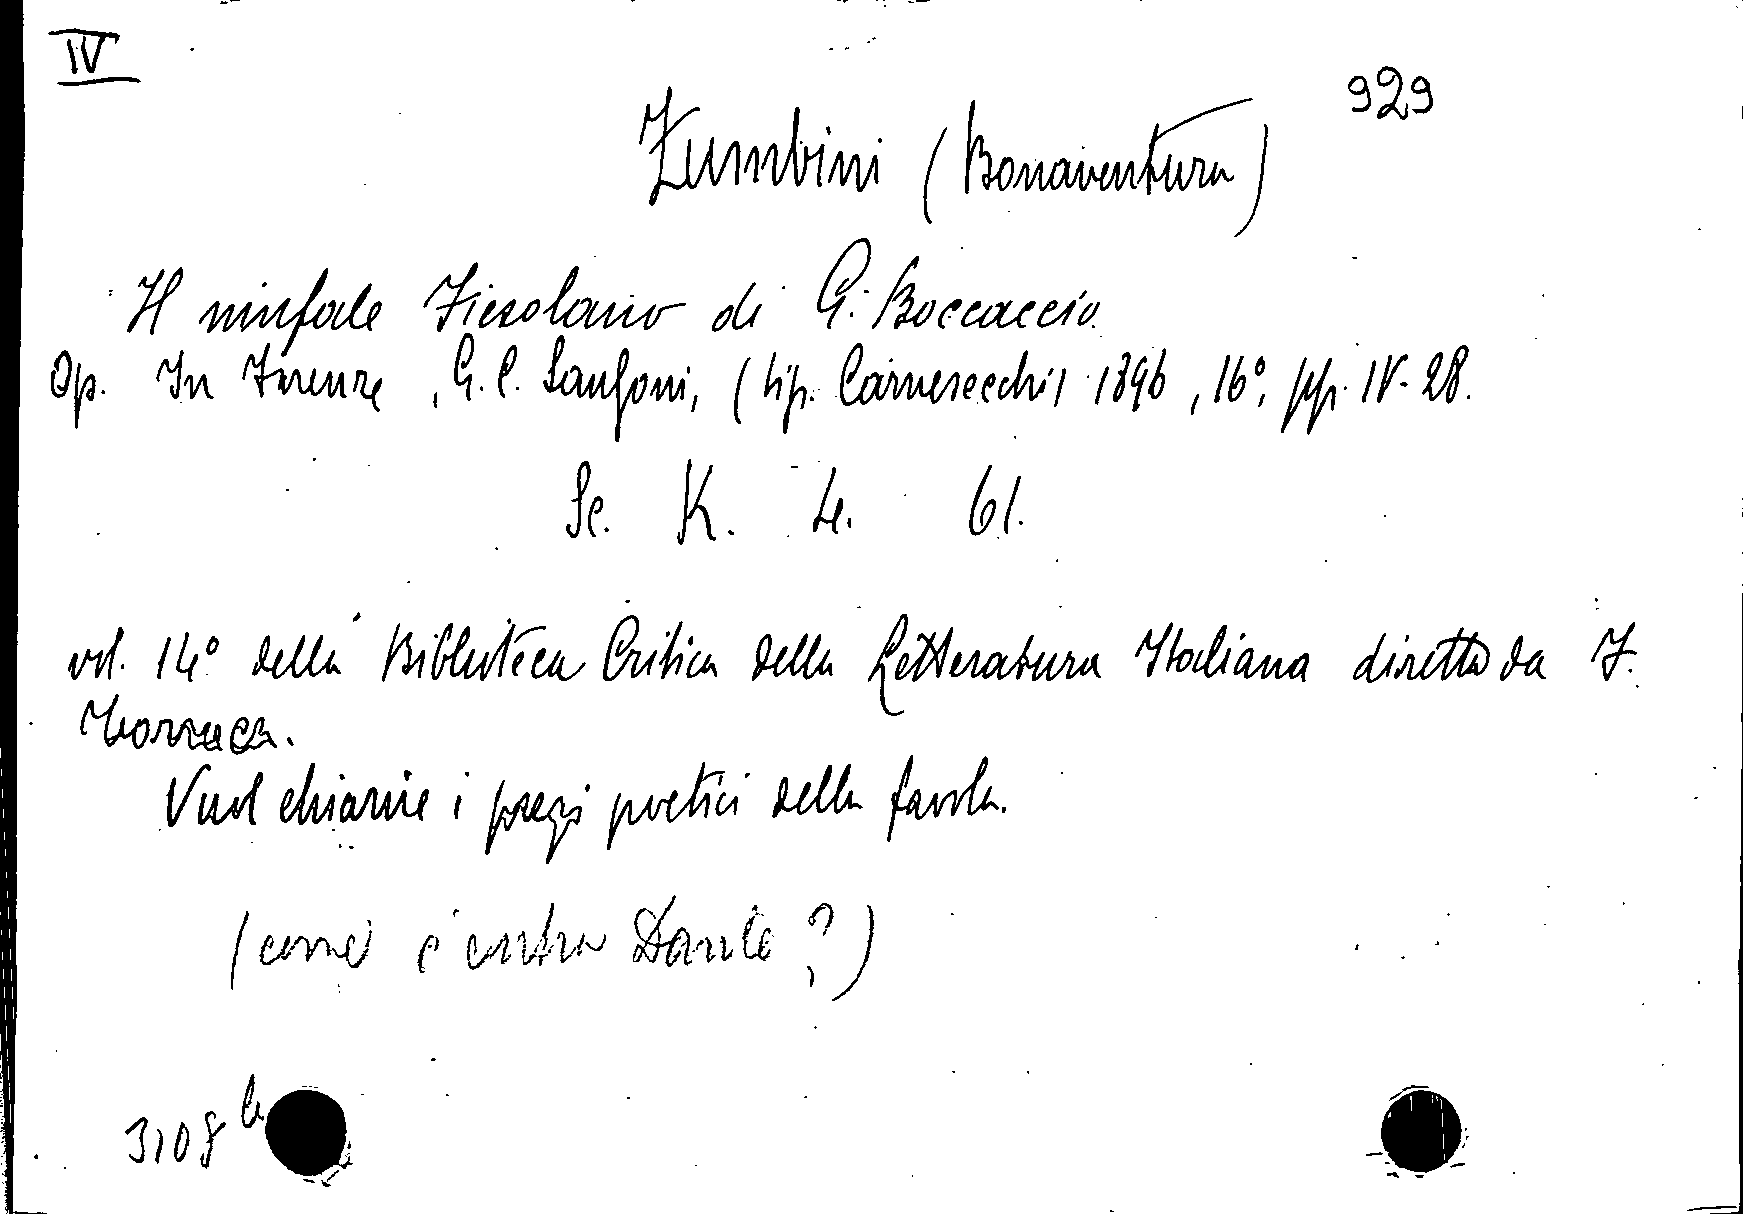 IV
929
Zumbini (Bonaventura)
Il ninfale Fiesolano di G. Boccaccio.
Op. In Firenze, G. C. Sansoni, (tip. Carnesecchi) 1896, 16°, pp. IV-28.
Sc. K. 4. 61.
vol. 14° della Biblioteca Critica della Letteratura Italiana diretta da F.
Torraca.
Vuol chiarire i pregi poetici della favola.
(come c'entra Dante?)
3108